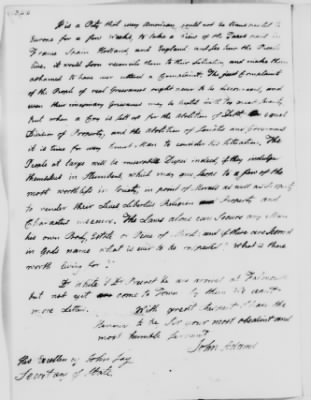 It is a Pity that every American, could not be transported to
Europe for a few Weeks, to take a View of the Taxes paid in
France Spain Holland and England and see how the People
live. it would soon reconcile them to their situation, and make them
ashamed to have ever uttered a Complaint. The just Complaints
of the People of real Grievances ought never to be discouraged, and
even their imaginary Grievances may be treated with too much Severity
but when a Cry is set up for the abolition of Debts equal
Division of Property, and the abolition of Senates and Governors
it is time for every honest Man to consider his Situation. The
People at large will be miserable Dupes indeed, if they indulge
themselves in which may one
most worthless in Society, in point of Morals as well as Property
to render their Lives Liberties Religion Property and
Characters insecure. The Laws alone can Secure any Man
his own Body, Estate or Peace of Mind, and if these are
in Gods name what is ever to be respected? What is there
worth living for?
Dr White & Dr Provost are arrived at Falmouth
but not yet come to Town by them
more Letters. With great Respect I have the
Honour to be Sir your most obedient and
most humble Servant
John Adams
His Excellency John Jay
Secretary of State